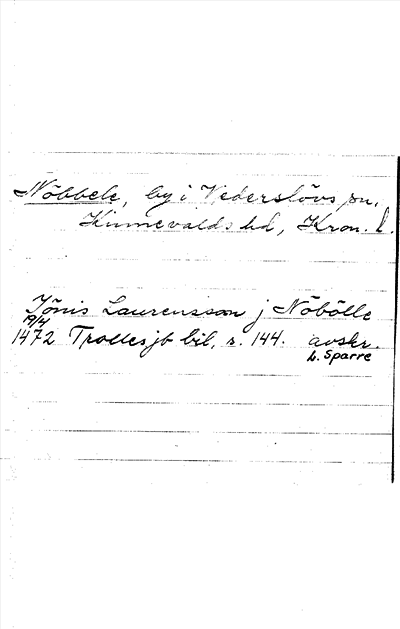 Nöbbele, by i Vederslövs sn,
Kinnevalds hd, Kron. l.
Jönis Laurensson j Nöbölle
19/4
1472 Trollesjö bil, s. 144. avskr.
L. Sparre